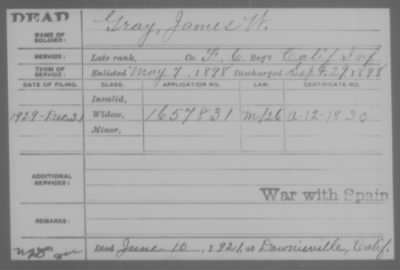 DEAD
NAME OF SOLDIER: Gray, James W.
SERVICE: Late rank, Co. F, 6 Reg't Calif Inf.
TERM OF SERVICE: Enlisted May 7, 1898 Discharged Sept. 27, 1898
DATE OF FILING. CLASS. APPLICATION NO. LAW. CERTIFICATE NO.
Invalid,
1929-Dec 31 Widow, 1657831 A-12-18-30
Minor,
ADDITIONAL SERVICES:
War with Spain
REMARKS:
Died June 10, 1921, at Downieville, Calif.